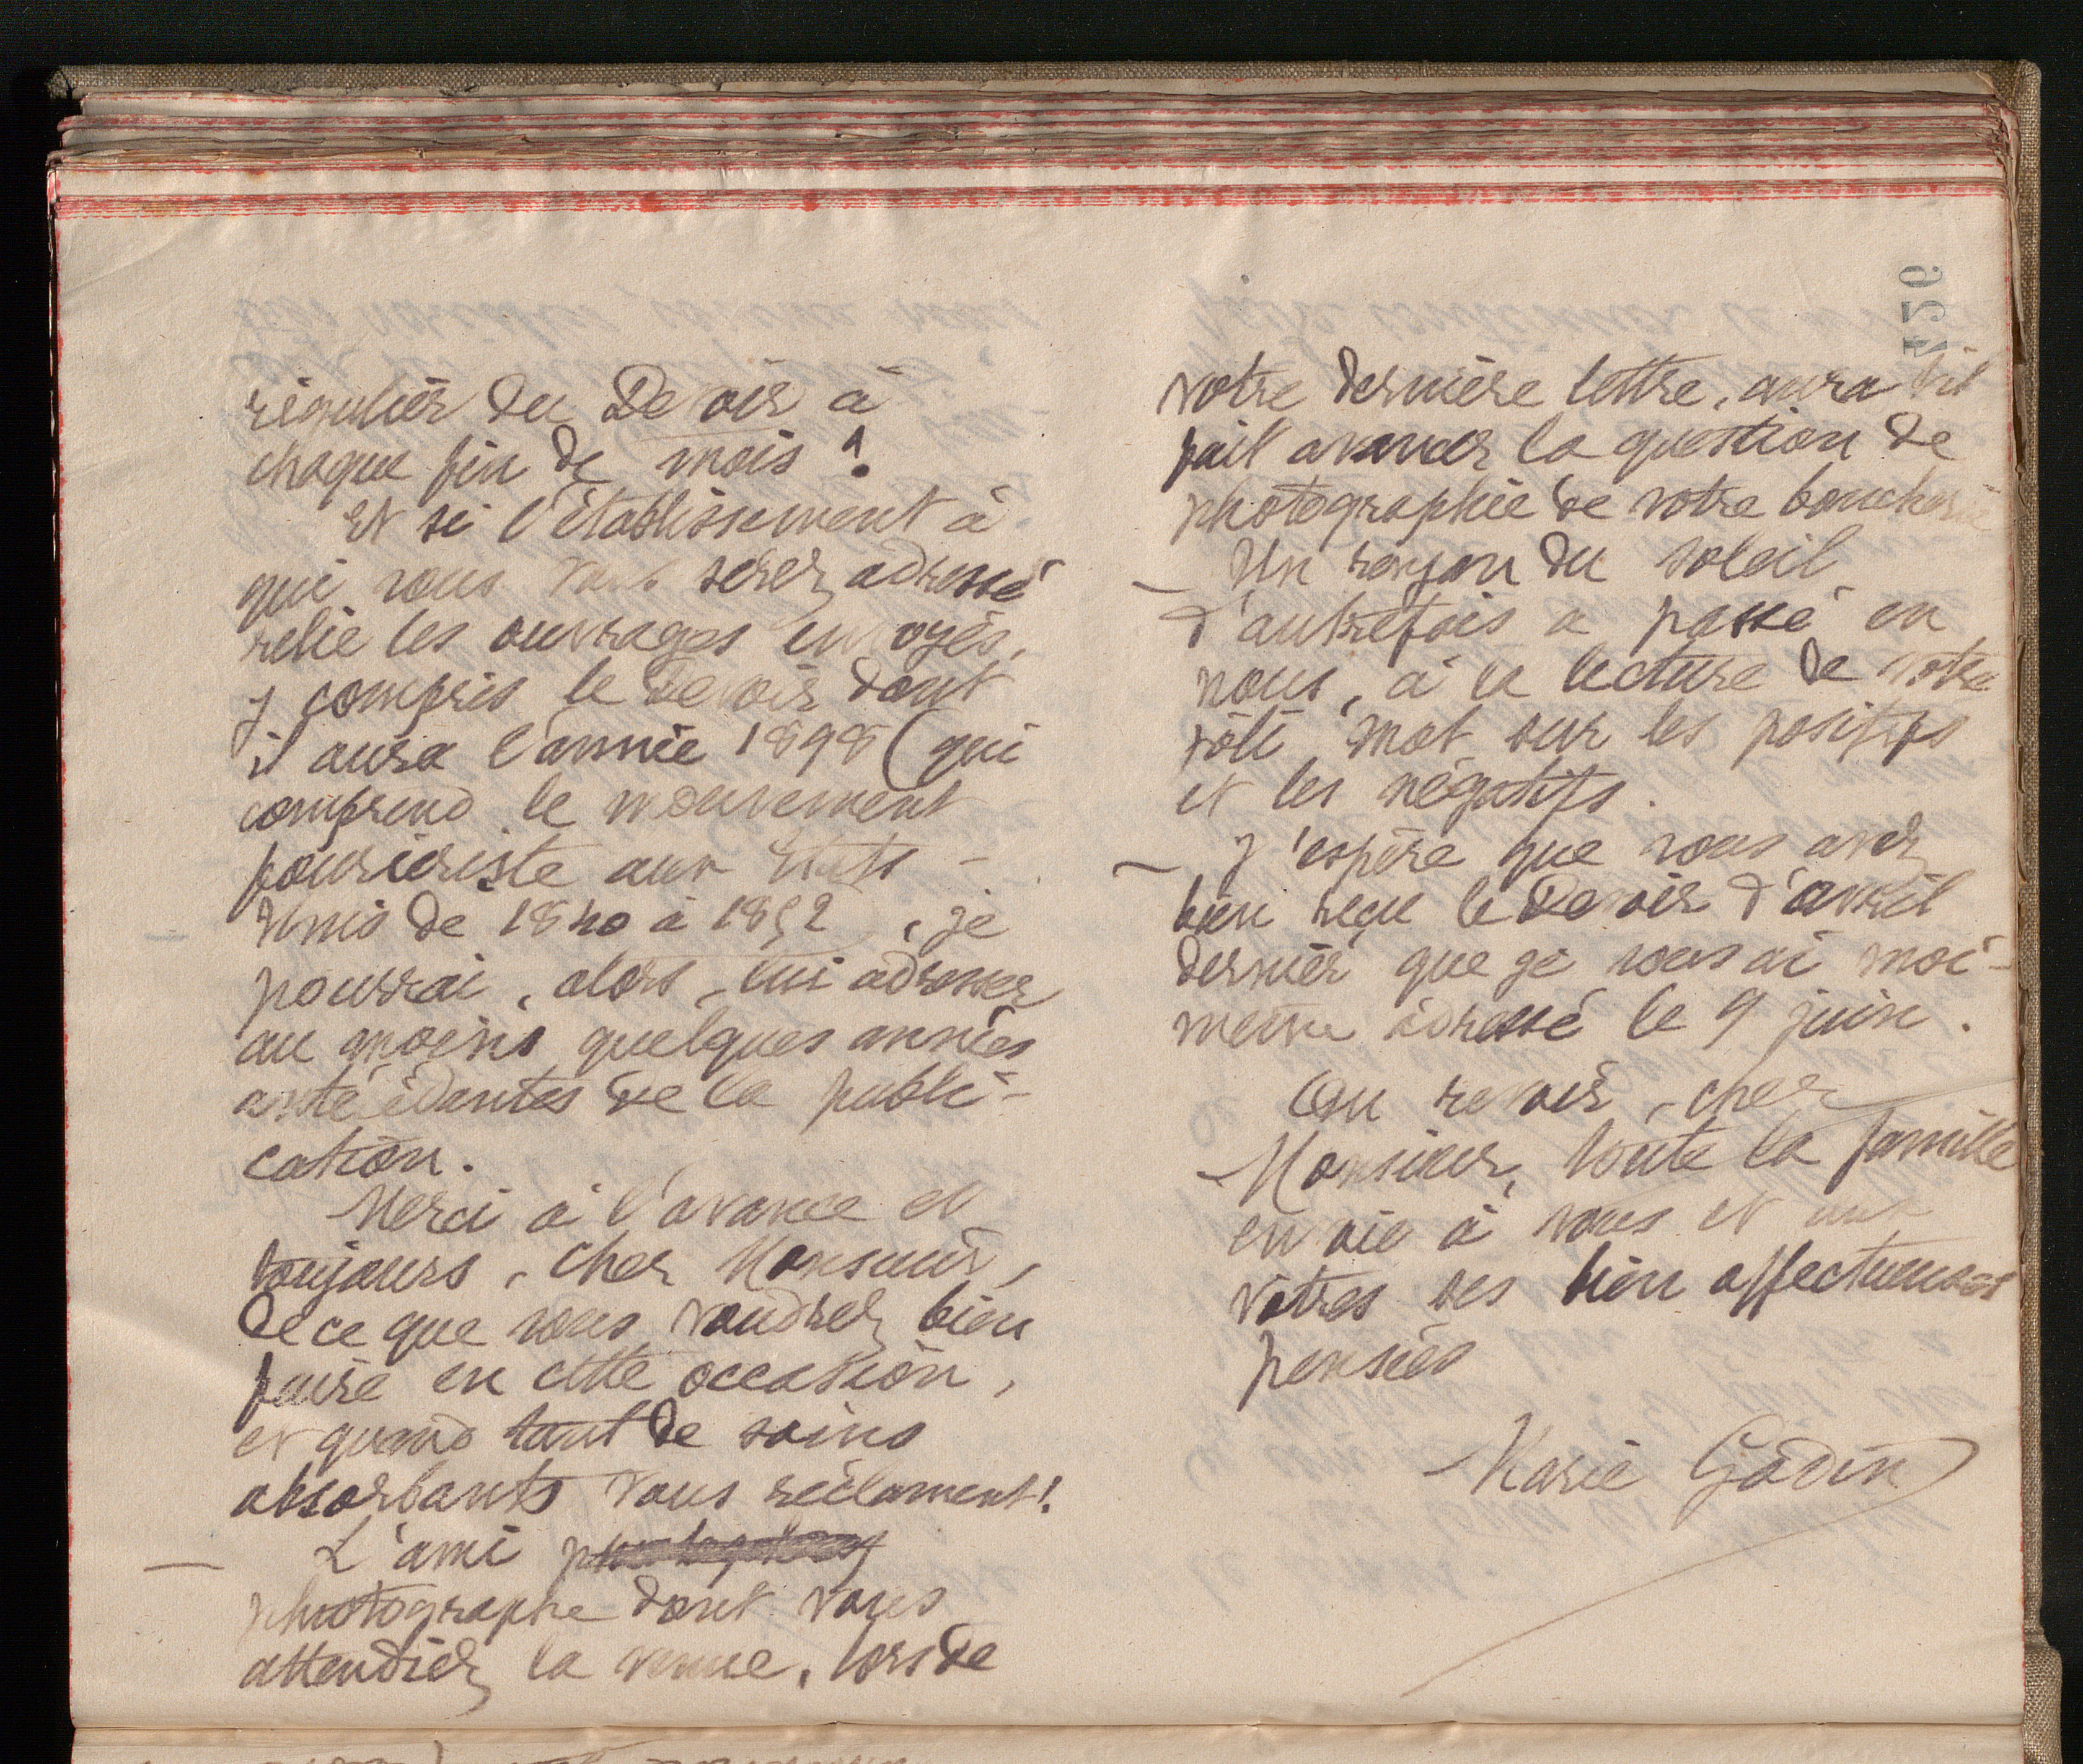 régulier du Devoir à
chaque fin de mois !
Et si l'établissement à
qui vous vous serez adressé
relie les ouvrages envoyés,
y compris le Devoir dont
il aura l'année 1898 (qui
comprend le mouvement
fouriériste aux Etats-
Unis de 1840 à 1852, je
pourrai, alors, lui adresser
au moins quelques années
antécédantes de la publi-
cation.
Merci à l'avance et
toujours, cher Monsieur,
de ce que vous voudrez bien
faire en cette occasion,
et quand tant de soins
absorbants vous réclament !
— L'ami
photographe dont vous
attendiez la venue, lors de
votre dernière lettre, aura-t-il
fait avancer la question de
photographie de votre boucherie
— Un rayon du soleil
d'autrefois a passé en
nous, à la lecture de votre
joli mot sur les positifs
et les négatifs.
— J'espère que vous avez
bien reçu le Devoir d'avril
dernier que je vous ai moi-
même adressé le 9 juin.
Au revoir, cher
Monsieur, toute la famille
envoie à vous et aux
vôtres ses bien affectueuses
pensées
Marie Godin